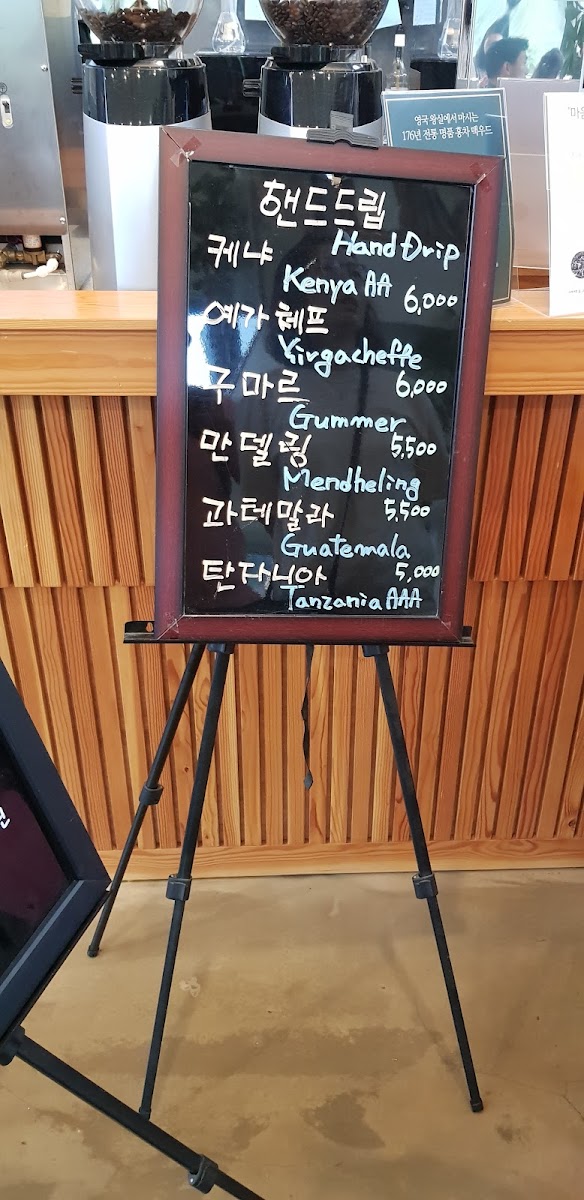 영국 왕실에서 마시는
176년 전통 명품 홍차 떼우드
'마음
핸드드립
Hand Drip
케냐
Kenya AA 6,000
예가체프
Yirgacheffe
구마르 6,000
Gummer
만델링 5,500
Mendheling
과테말라 5,500
Guatemala
탄자니아 5,000
Tanzania AAA